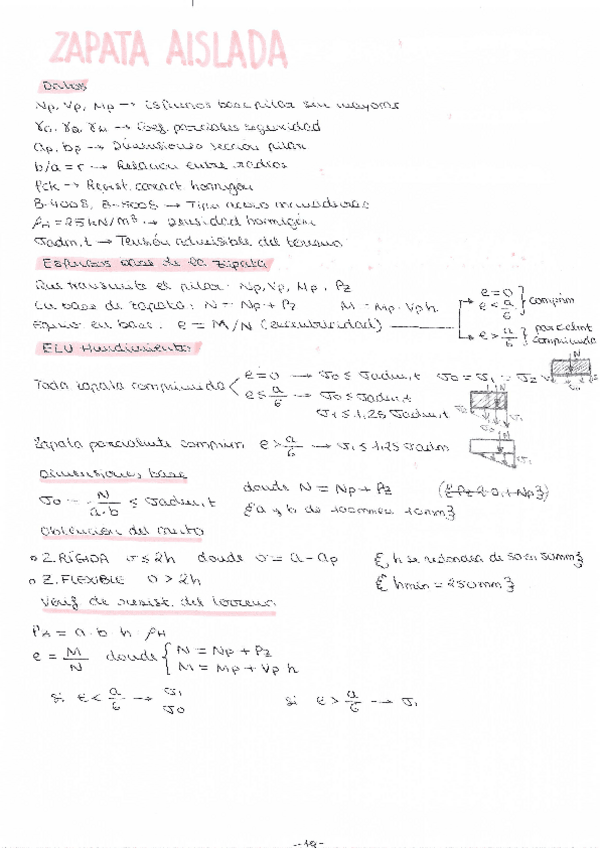 ZAPATA AISLADA
Datos
Np, Vp, Mp → Esfuerzos base pilar sin mayorar
γG, γQ, γM → Coef. parciales seguridad
ap, bp → Dimensiones sección pilar
b/a = r → Relación entre radios
fck → Resist. caract. hormigón
B-400S, B-500S → Tipo acero armaduras
ρH = 25 kN/m³ → Densidad hormigón
σadm,t → Tensión admisible del terreno
Esfuerzos base de la zapata
Que transmite el pilar: Np, Vp, Mp, Pz
En base de zapata: N = Np + Pz M = Mp · Vp h
en base: e = M/N (excentricidad)
e = 0
e < a/6 } comprim
e > a/6 } parcialmt comprimida
ELU Hundimiento
Toda zapata comprimida
e = 0 → σ0 ≤ σadm,t σ0 = σ1 = σ2
e ≤ a/6 → σ0 ≤ σadm,t
σ1 ≤ 1,25 σadm,t
Zapata parcialmente comprim e > a/6 → σ1 ≤ 1,25 σadm
Dimensiones base
σ0 = N/a·b ≤ σadm,t donde N = Np + Pz
{a y b de 100mm en 100mm}
Obtención del canto
Z. RÍGIDA σ ≤ 2h donde σ = a - ap {h se redondea de 50 en 50mm}
Z. FLEXIBLE σ > 2h {hmin = 250mm}
Verif de resist. del terreno
PA = a·b h ρH
e = M/N donde { N = Np + Pz
M = Mp + Vp h
si e < a/6 → σ1
σ0
si e > a/6 → σ1
-19-